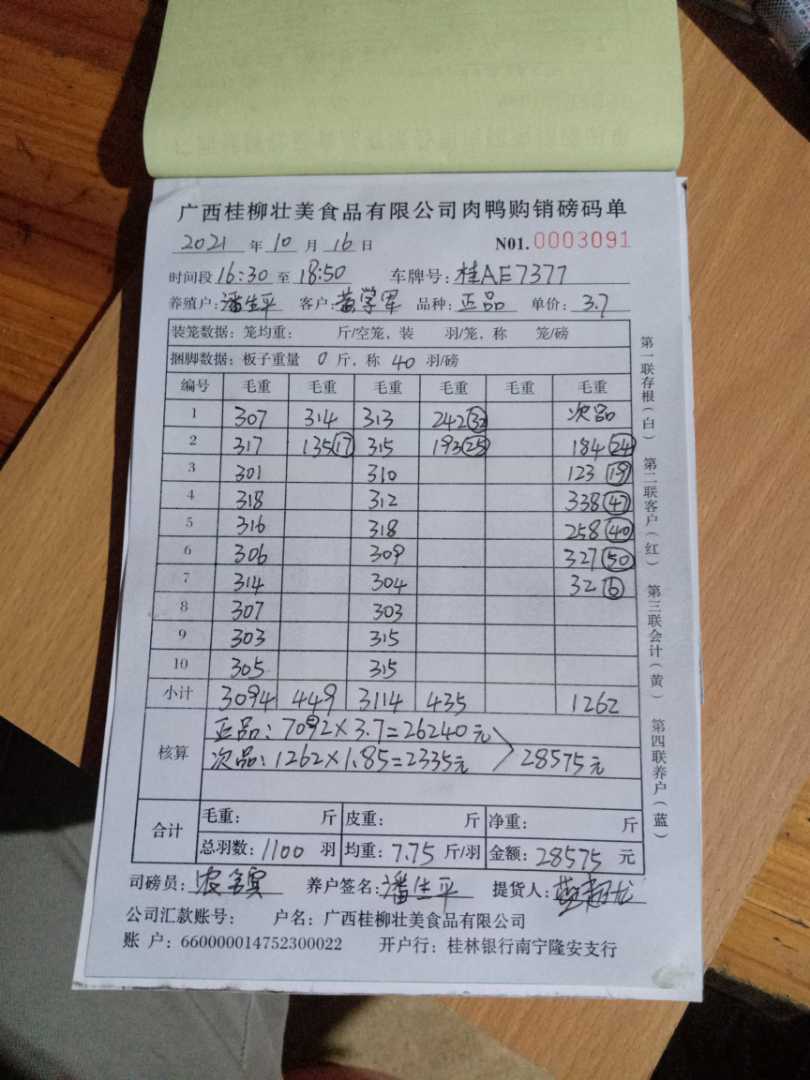 广西桂柳壮美食品有限公司肉鸭购销磅码单
2021 年 10 月 16 日 N01. 0003091
时间段 16:30 至 18:50 车牌号: 桂AE7377
养殖户: 潘生平 客户: 黄学军 品种: 正品 单价: 3.7
装笼数据: 笼均重: 斤/空笼, 装 羽/笼, 称 笼/磅
捆脚数据: 板子重量 0 斤, 称 40 羽/磅
编号 毛重 毛重 毛重 毛重 毛重 毛重
1 307 314 313 242(32) 次品
2 317 135(17) 315 193(25) 184(24)
3 301 310 123(19)
4 318 312 338(47)
5 316 318 258(40)
6 306 309 327(50)
7 314 304 32(6)
8 307 303
9 303 315
10 305 315
小计 3094 449 3114 435 1262
核算 正品: 7092×3.7=26240元
次品: 1262×1.85=2335元 28575元
合计 毛重: 斤 皮重: 斤 净重: 斤
总羽数: 1100 羽 均重: 7.75 斤/羽 金额: 28575 元
司磅员: 养户签名: 潘生平 提货人:
公司汇款账号: 户名: 广西桂柳壮美食品有限公司
账 户: 660000014752300022 开户行: 桂林银行南宁隆安支行
第一联存根(白) 第二联客户(红) 第三联会计(黄) 第四联养户(蓝)